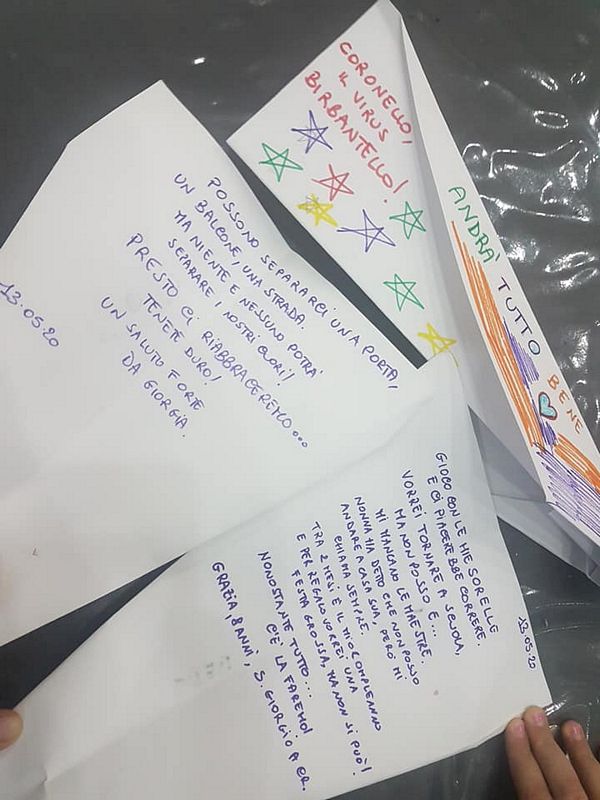 CORONELLO,
IL VIRUS
BIRBANTELLO!
ANDRÀ TUTTO BENE
POSSONO SEPARARCI UNA PORTA,
UN BALCONE, UNA STRADA.
MA NIENTE E NESSUNO POTRÀ
SEPARARE I NOSTRI CUORI!
PRESTO CI RIABBRACEREMO...
TENETE DURO!
UN SALUTO FORTE
DA GIORGIA.
13.05.20
GIOCO CON LE MIE SORELLE
E CI PIACEREBBE CORRERE.
VORREI TORNARE A SCUOLA,
MA NON POSSO E...
MI MANCANO LE MAESTRE.
NONNA HA DETTO CHE NON POSSO
ANDARE A CASA SUA, PERÒ MI
CHIAMA SEMPRE.
TRA 2 MESI È IL MIO COMPLEANNO
E PER REGALO VORREI UNA
FESTA GROSSA, MA NON SI PUÒ!
NONOSTANTE TUTTO...
C'È LA FAREMO!
GRAZIA 8 ANNI, S. GIORGIO A CR.
13.05.20